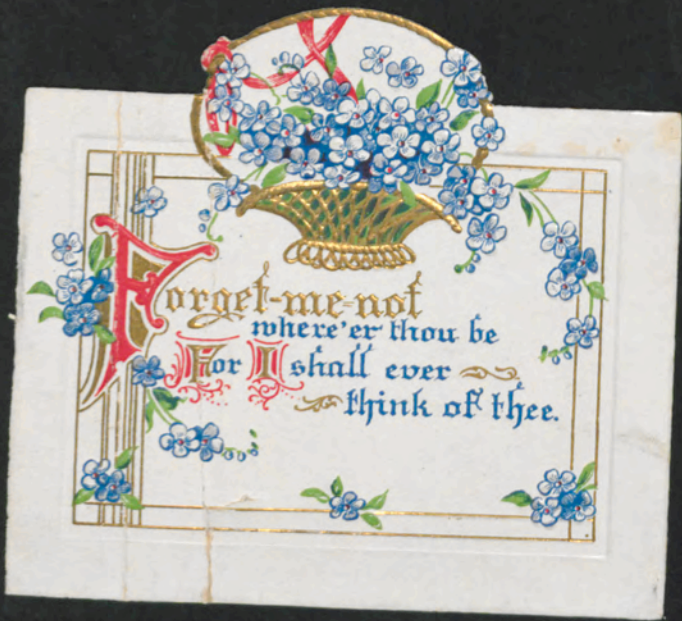 Forget-me-not
where'er thou be
For I shall ever
think of thee.